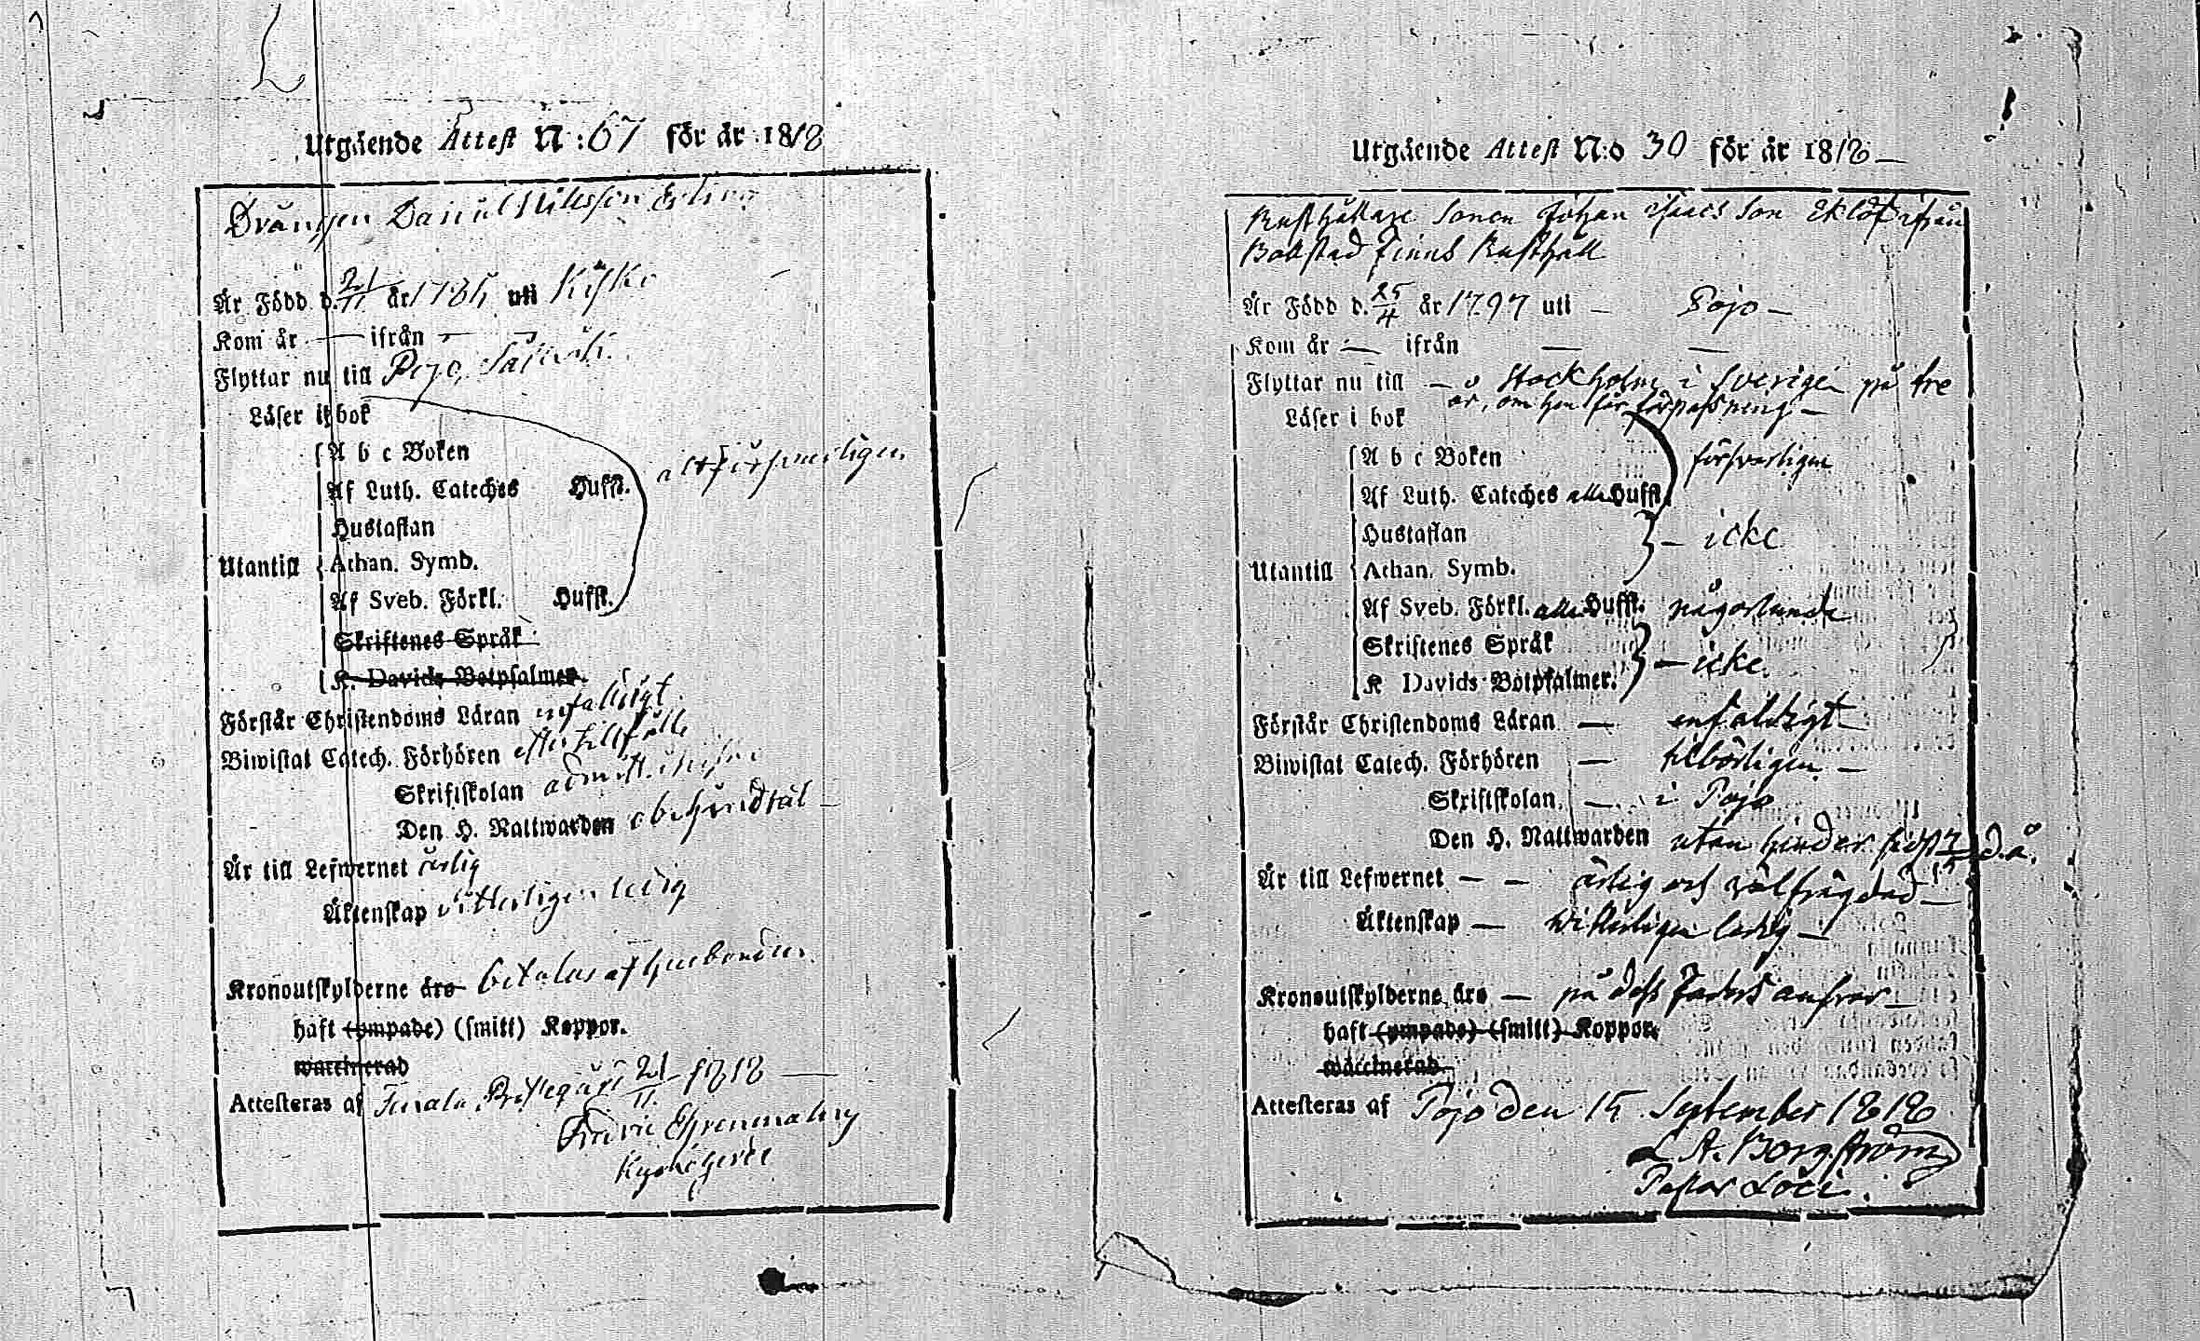 Utgående Attest N:67 för år 1818
Drängen Daniel Nilsson
Är Född d. 21/11 år 178 uti Kisko
Kom år — ifrån —
Flyttar nu till Pojo,
Läser i bok
A b c Boken
Af Luth. Cateches Hufst. alt försvarligen
Hustaflan
Utantill Athan. Symb.
Af Sveb. Förkl. Hufst.
Skriftenes Språk
K. Davids Botpsalmer.
Förstår Christendoms Läran enfalldigt
Biwistat Catech. Förhören efter tillfälle
Skriftskolan admitt. i Kisko
Den H. Nattwarden obehindrat
Är till Lefwernet ärlig
Äktenskap vitterligen ledig
Kronoutskylderne äro betalas af husbonden
haft (ympade) (smitt) Koppor.
waccinerad
Attesteras af Prestegård 21/11 1818
Fredric Ehrenmalm
Kyrkoherde
Utgående Attest N:o 30 för år 1818
Rusthållare Sonen Johan Isaacs Son Eklöf ifrån
Bollstad Finns Rusthåll
Är Född d. 25/4 år 1797 uti — Pojo —
Kom år — ifrån — —
Flyttar nu till — Stockholm i Sverige på tre
år, om han får förpassning —
Läser i bok
A b c Boken försvarligen
Af Luth. Cateches alla Hufst.
Hustaflan — icke
Utantill Athan. Symb.
Af Sveb. Förkl. alla Hufst. någorlunda
Skriftenes Språk — icke
K Davids Botpsalmer.
Förstår Christendoms Läran — enfaldigt
Biwistat Catech. Förhören — tilbörligen —
Skriftskolan — i Pojo
Den H. Nattwarden utan hinder sidst d.å.
Är till Lefwernet — — ärlig och välfrägdad —
Äktenskap — vitterligen ledig —
Kronoutskylderne äro — på dess Faders ansvar —
haft (ympade) (smitt) Koppor.
waccinerad
Attesteras af Pojo den 15 September 1818
A. Borgström
Pastor Loci.